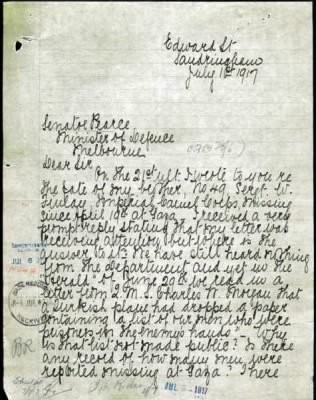 Edward St
Sandringham
July 1st 1917
Senator Pearce
Minister of Defence
Melbourne
Dear Sir
On the 21st ult I wrote to you re
the fate of my brother, No 49, Sergt. W.
Imperial Camel Corps, missing
since April 19th at Gaza. I received a very
prompt reply stating that my letter was
receiving attention, but where is the
answer to it? We have still heard nothing
from the Department and yet in the
"Herald" of June 20th we read in a
letter from Q.M.S. Charles W. that
a Turkish flyer had dropped a paper
containing "a list of our men who were
prisoners in the enemy's hands". Why
is that list not made public? Is there
any record of how many men were
reported missing at Gaza? There
JUL 6
BR
JUL 1917